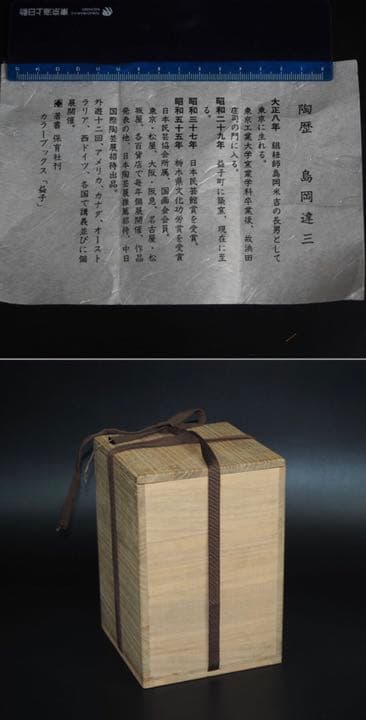 東京海上日動
陶歴 島岡達三
大正八年 組紐師島岡米吉の長男として
東京に生れる。
東京工業大学窯業学科卒業後、故浜田
庄司の門に入る。
昭和二十九年 益子町に築窯、現在に至
る。
昭和三十七年 日本民芸館賞を受賞。
昭和五十五年 栃木県文化功労賞を受賞
日本民芸協会所属、国画会会員。
東京・松屋、大阪・阪急、名古屋・松
坂屋、各百貨店で毎年個展開催、作品
発表の他、日本陶芸展推薦招待、中日
国際陶芸展招待出品。
外遊十二回、アメリカ、カナダ、オースト
ラリア、西ドイツ、各国で講義並びに個
展開催。
※ 著書 保育社刊
カラーブックス「益子」